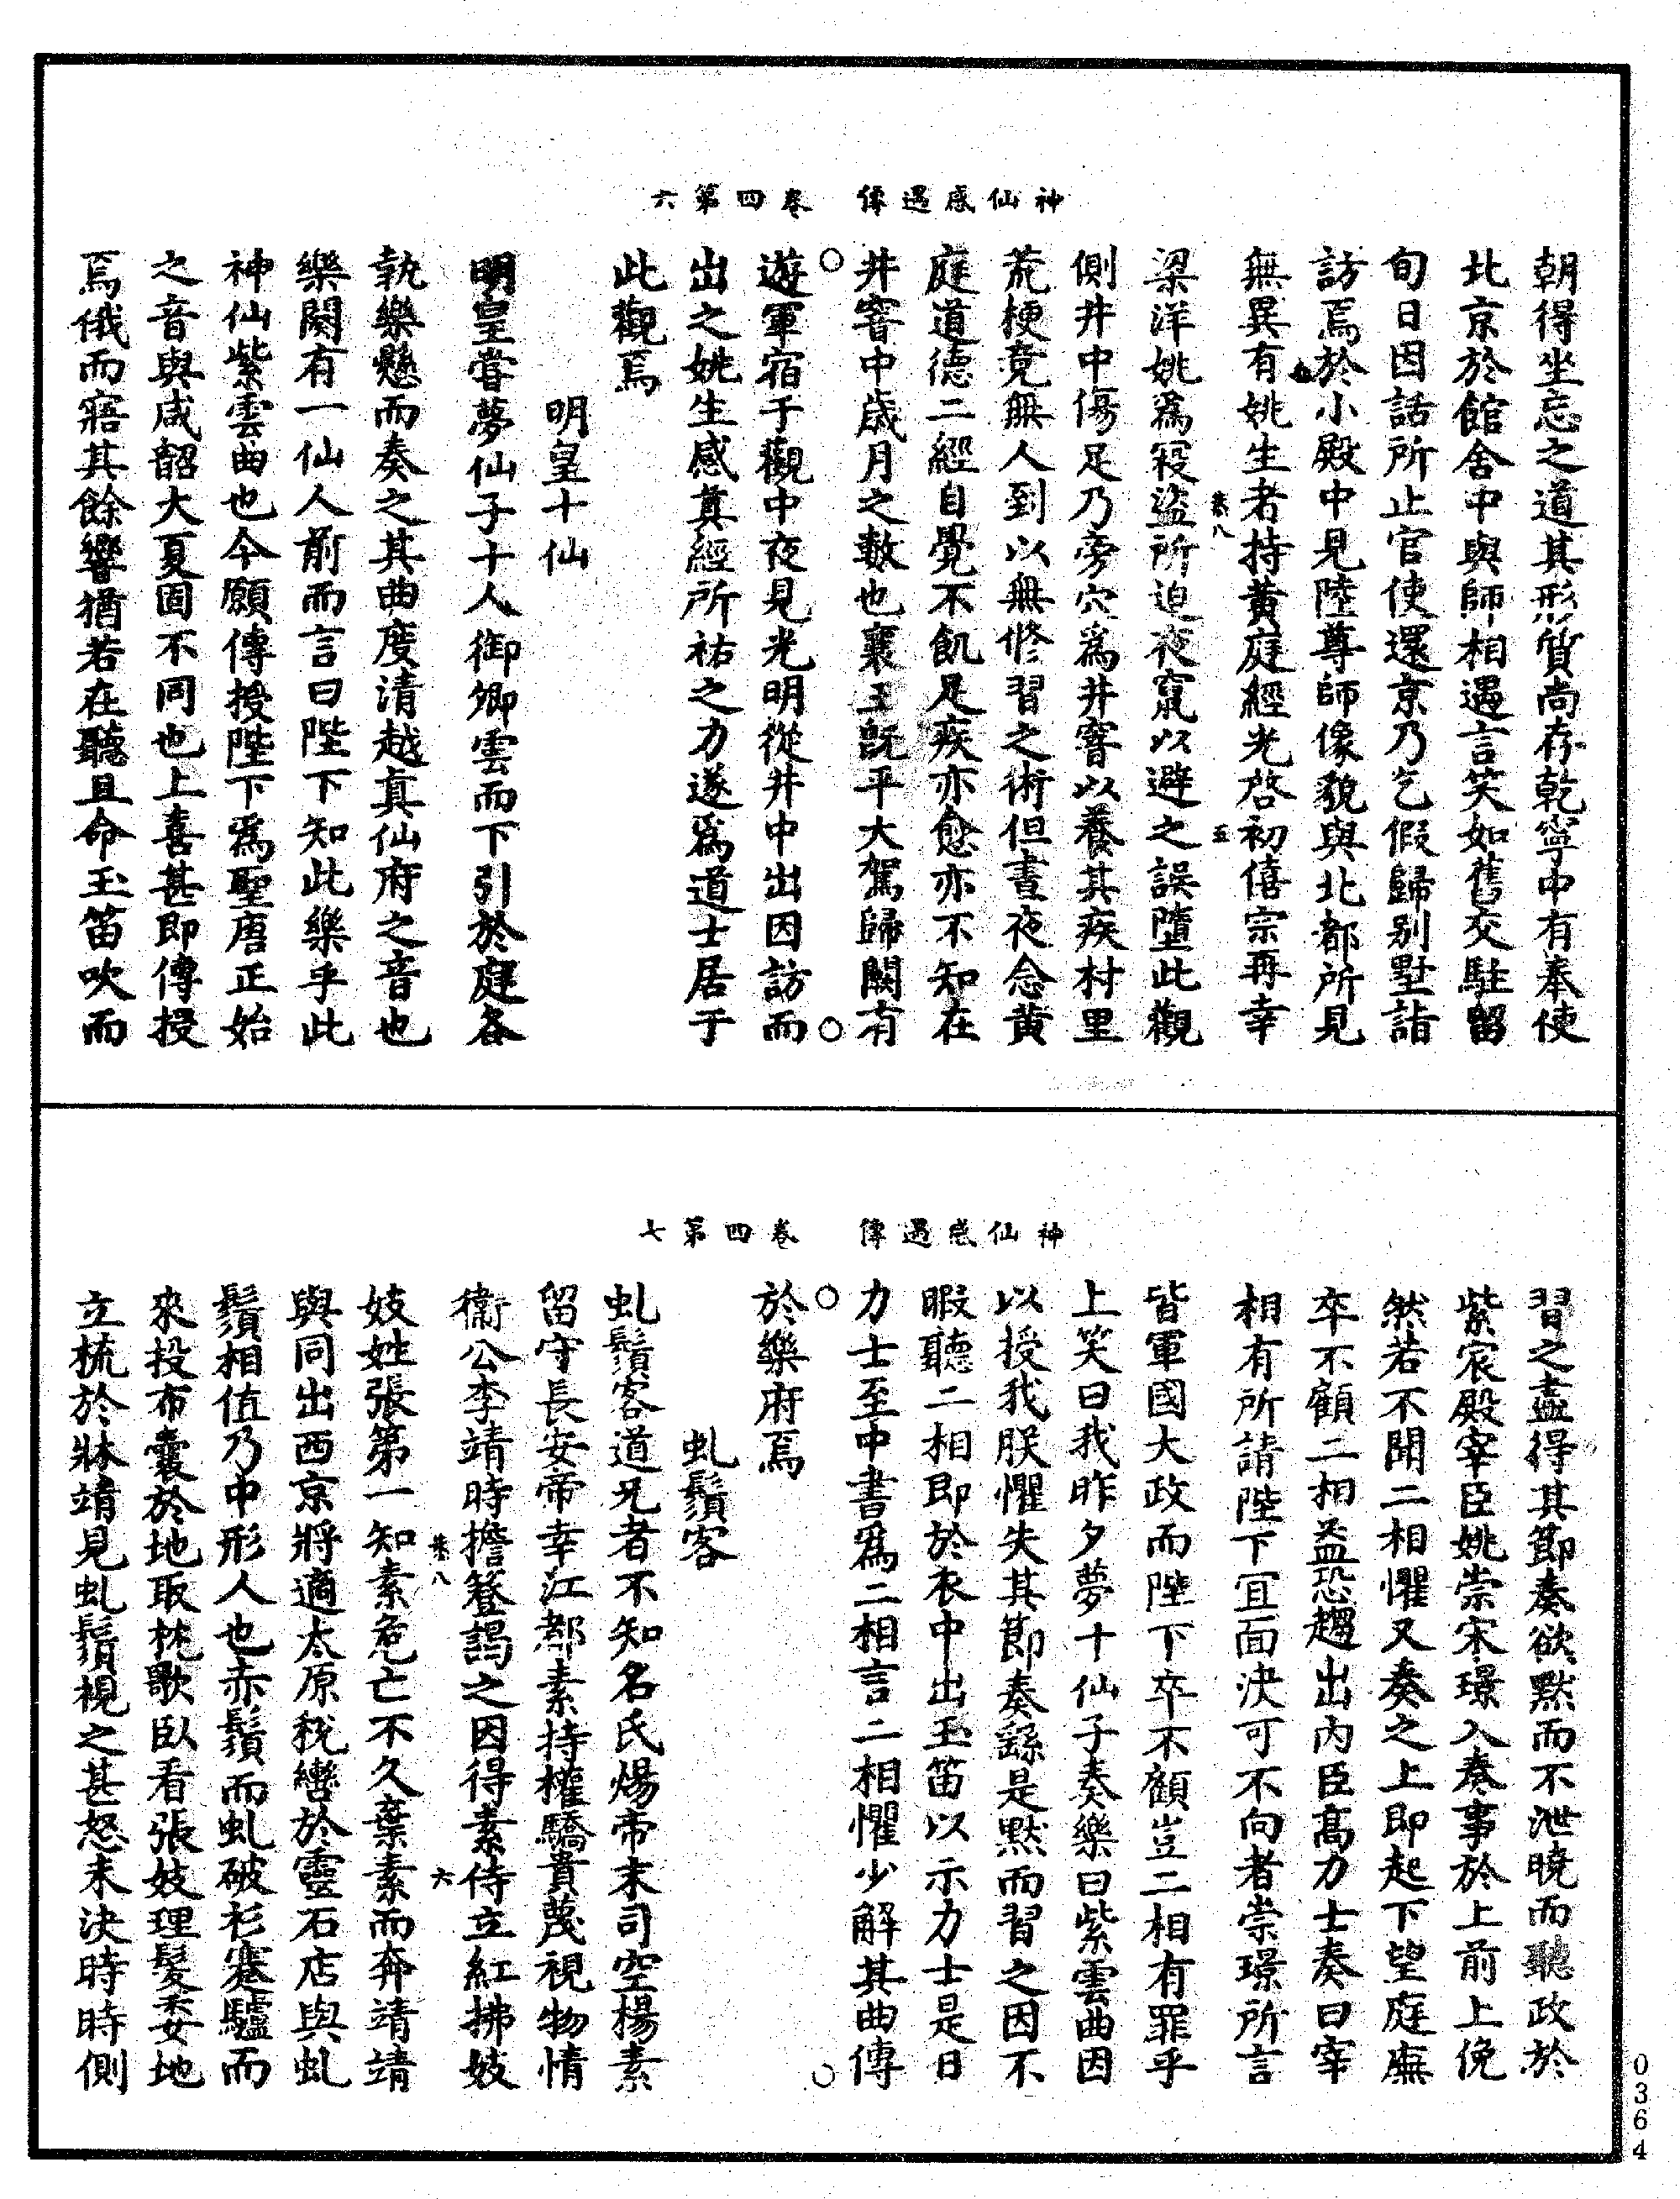 神仙感遇傳 卷四第六
朝得坐忘之道其形質尚存乾寧中有奉使
北京於館舍中與師相遇言笑如舊交駐留
旬日因話所止官使還京乃乞假歸别墅詣
訪焉於小殿中見陸尊師像貌與北都所見
無異有姚生者持黄庭經光啓初僖宗再幸
恭八 五
梁洋姚爲寇盜所迫夜竄以避之誤墮此觀
側井中傷足乃旁穴爲井窨以養其疾村里
荒梗竟無人到以無修習之術但晝夜念黄
庭道德二經自覺不飢足疾亦愈亦不知在
井窨中歲月之數也襄王既平大駕歸闕有
遊軍宿于觀中夜見光明從井中出因訪而
出之姚生感真經所祐之力遂爲道士居于
此觀焉
明皇十仙
明皇嘗夢仙子十人御卿雲而下引於庭各
執樂懸而奏之其曲度清越真仙府之音也
樂闋有一仙人前而言曰陛下知此樂乎此
神仙紫雲曲也今願傳授陛下爲聖唐正始
之音與咸韶大夏固不同也上喜甚即傳授
焉俄而寤其餘響猶若在聽且命玉笛吹而
神仙感遇傳 卷四第七
習之盡得其節奏欲默而不泄曉而聽政於
紫宸殿宰臣姚崇宋璟入奏事於上前上俛
然若不聞二相懼又奏之上即起下望庭廡
卒不顧二相益恐趨出内臣高力士奏曰宰
相有所請陛下宜面決可不向者崇璟所言
皆軍國大政而陛下卒不顧豈二相有罪乎
上笑曰我昨夕夢十仙子奏樂曰紫雲曲因
以授我朕懼失其節奏繇是默而習之因不
暇聽二相即於衣中出玉笛以示力士是日
力士至中書爲二相言二相懼少解其曲傳
於樂府焉
虬鬚客
虬鬚客道兄者不知名氏煬帝末司空楊素
留守長安帝幸江都素持權驕貴蔑視物情
衞公李靖時擔簦謁之因得素侍立紅拂妓
恭八 六
妓姓張第一知素危亡不久棄素而奔靖靖
與同出西京將適太原税轡於靈石店與虬
鬚相值乃中形人也赤鬚而虬破衫蹇驢而
來投布囊於地取枕欹臥看張妓理髮委地
立梳於牀靖見虬鬚視之甚怒未決時時側
0364